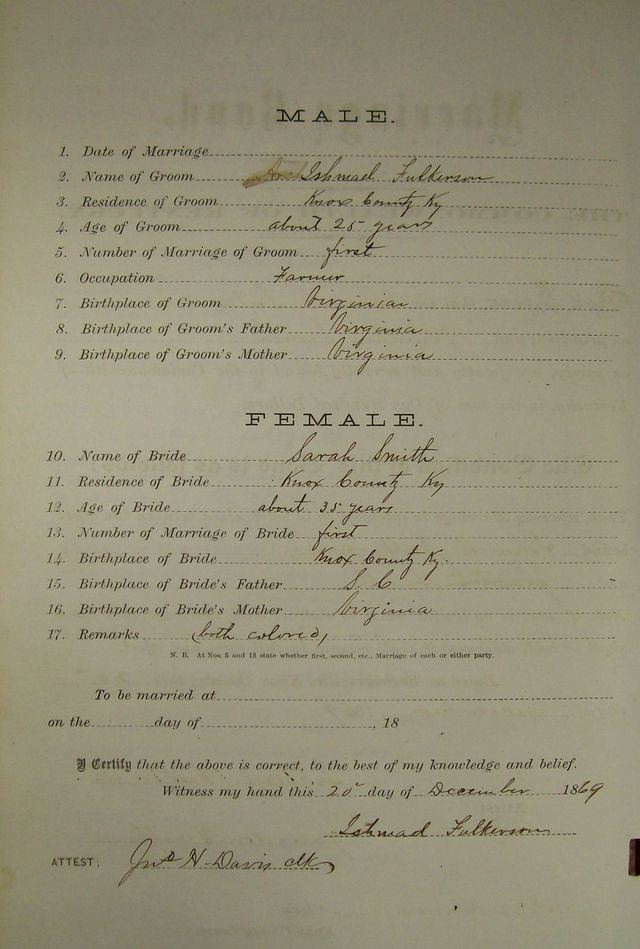 MALE.
1. Date of Marriage
2. Name of Groom Ishmad Fulkerson
3. Residence of Groom Knox County Ky
4. Age of Groom about 25 years
5. Number of Marriage of Groom first
6. Occupation Farmer
7. Birthplace of Groom Virginian
8. Birthplace of Groom's Father Virginia
9. Birthplace of Groom's Mother Virginia
FEMALE.
10. Name of Bride Sarah Smith
11. Residence of Bride Knox County Ky
12. Age of Bride about 35 years
13. Number of Marriage of Bride first
14. Birthplace of Bride Knox County Ky.
15. Birthplace of Bride's Father S. C
16. Birthplace of Bride's Mother Virginia
17. Remarks (both colored)
N. B. At Nos. 5 and 13 state whether first, second, etc., Marriage of each or either party.
To be married at
on the day of , 18
I Certify that the above is correct, to the best of my knowledge and belief.
Witness my hand this 20 day of December 1869
Ishmad Fulkerson
ATTEST; Jno H. Davis clk